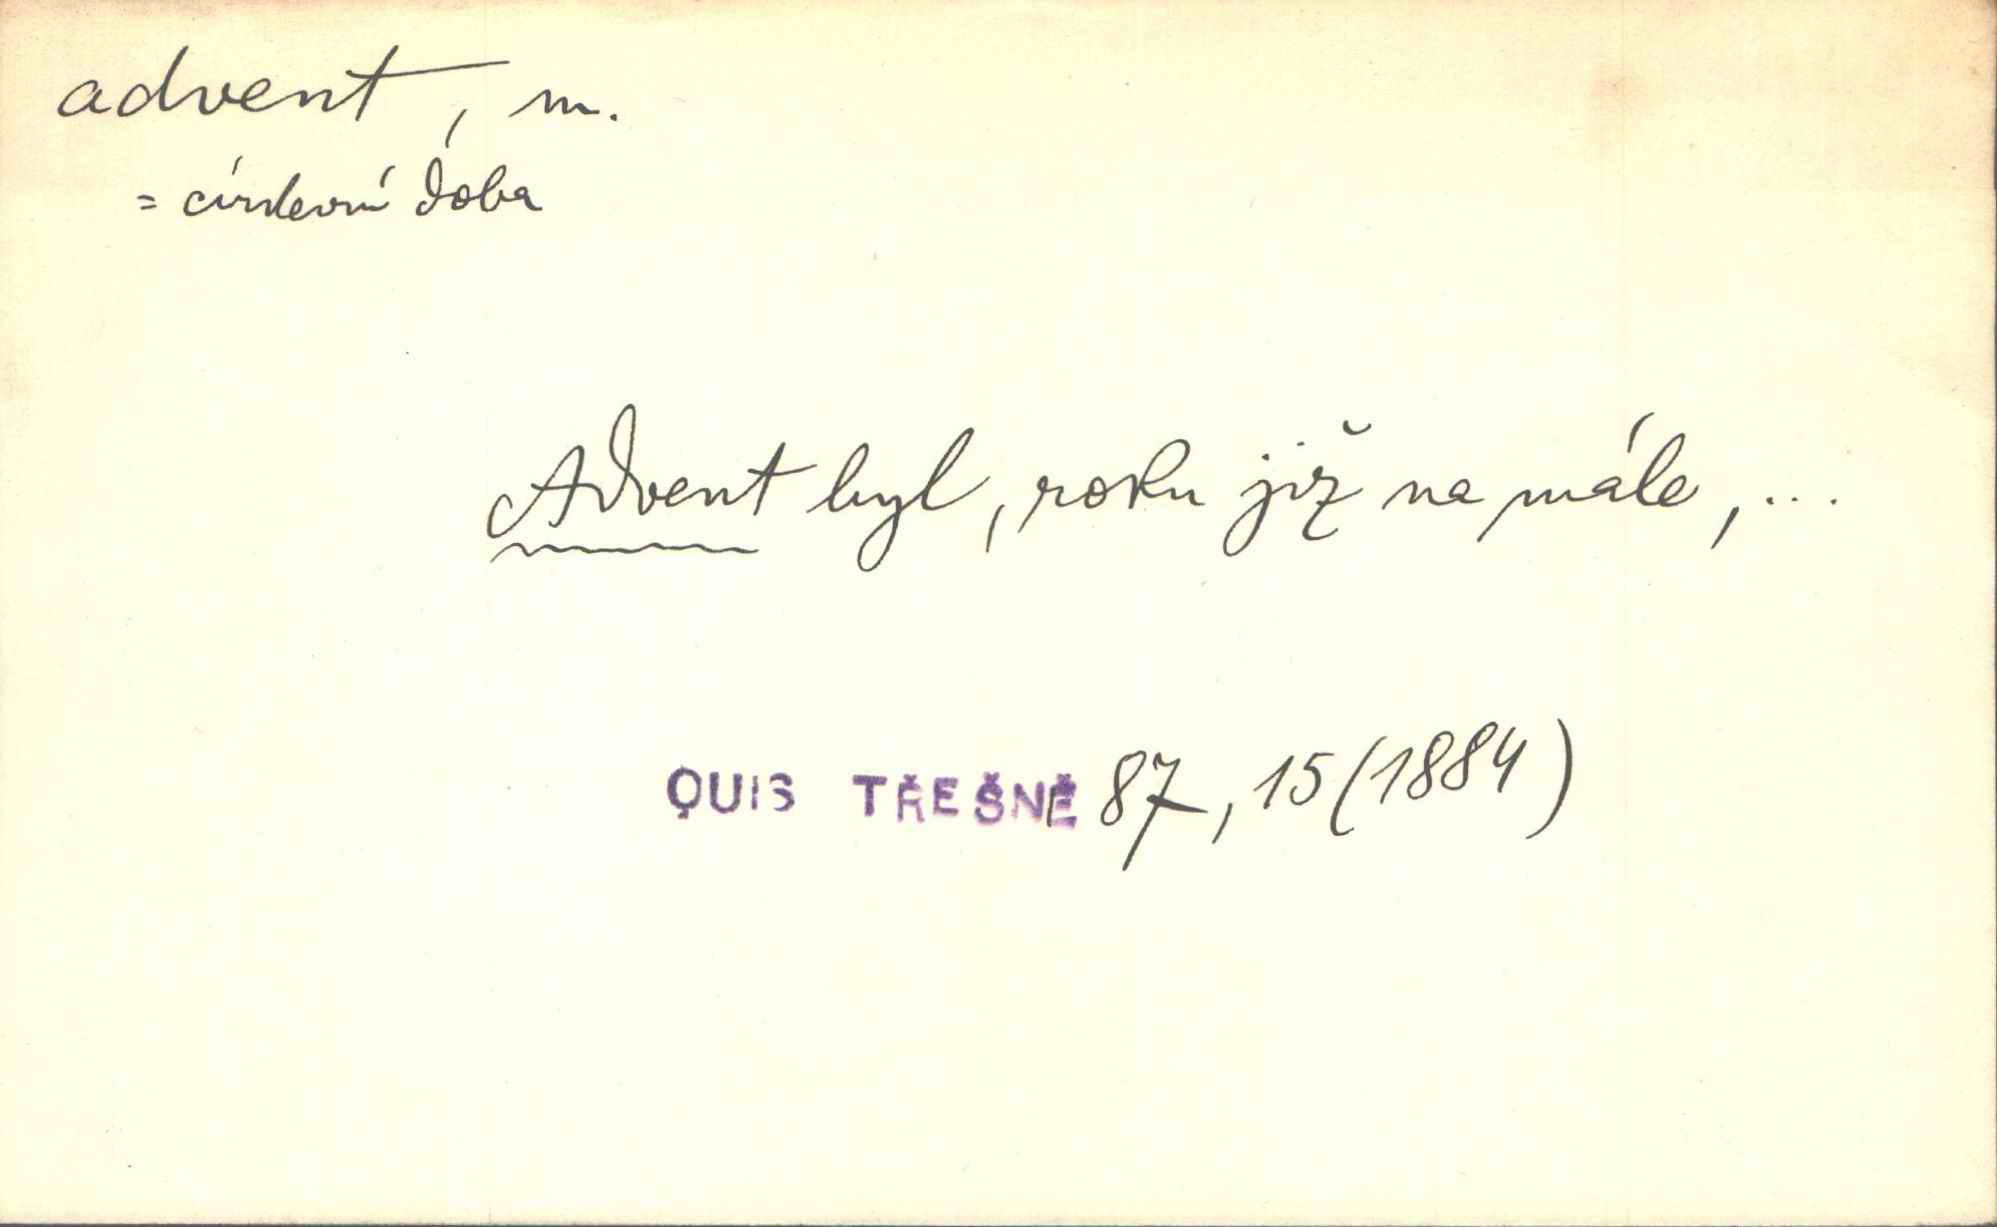 advent, m.
= církevní doba
Advent byl, roku již na mále, ...
QUIS TŘEŠNĚ 87, 15 (1884)